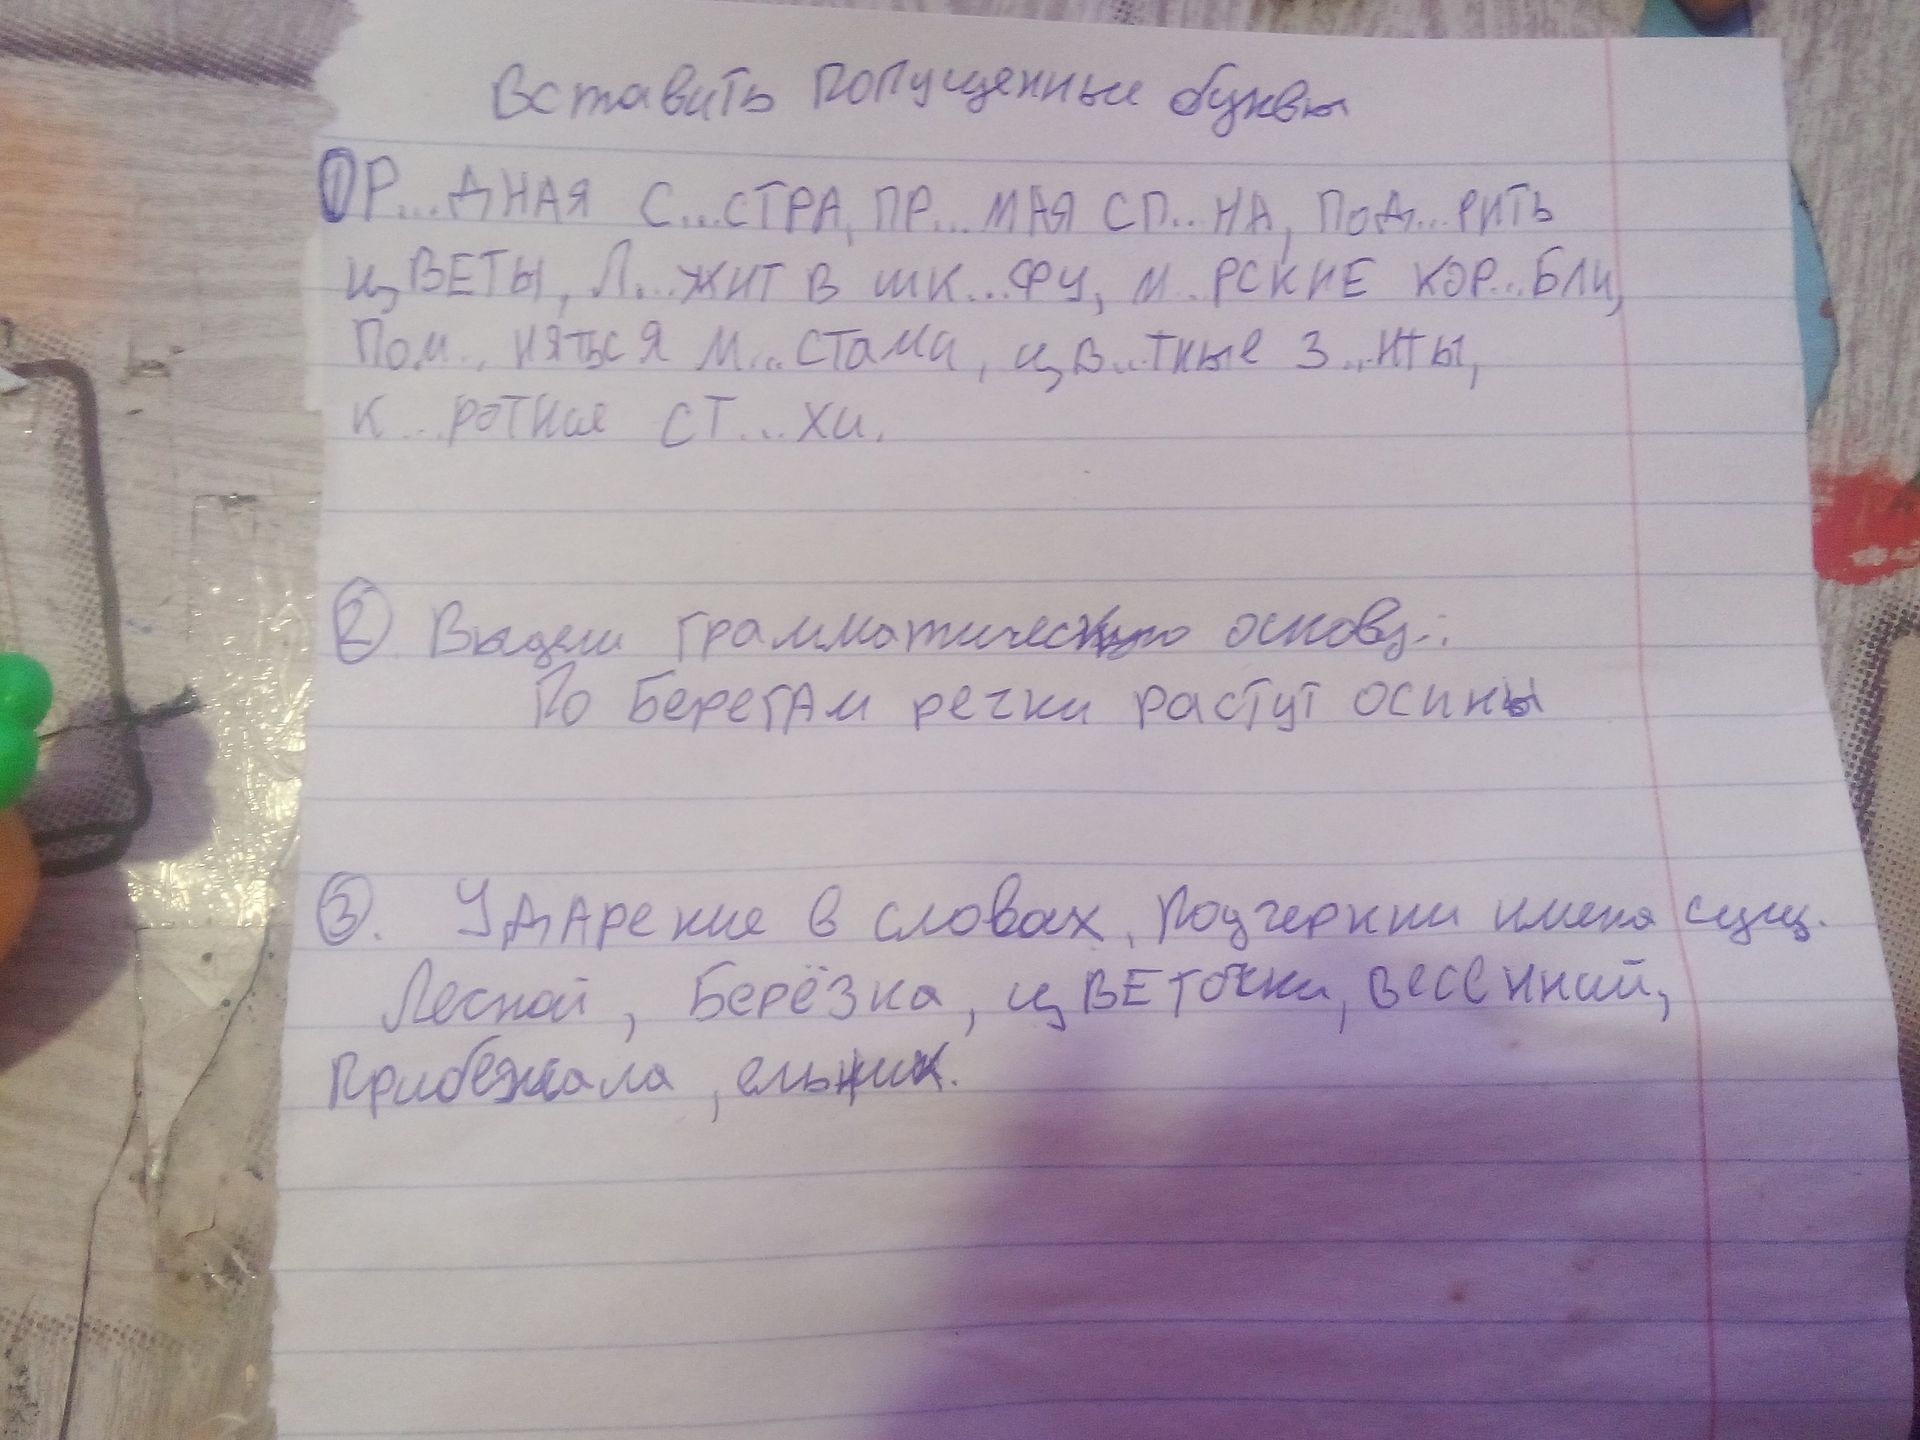 Вставить попущенные буквы
① Р...дная с...стра, пр...мая сп..на, под...рить
цветы, л...жит в шк...фу, м..рские кор...бли,
пом..няться м...стами, цв..тные з...нты,
к...роткие ст...хи.
②. Выдели грамматическую основу.:
По берегам речки растут осины
③. Ударение в словах, подчеркни имена сущ.
Лесной, берёзка, цветочки, весенний,
прибежала, ельник.